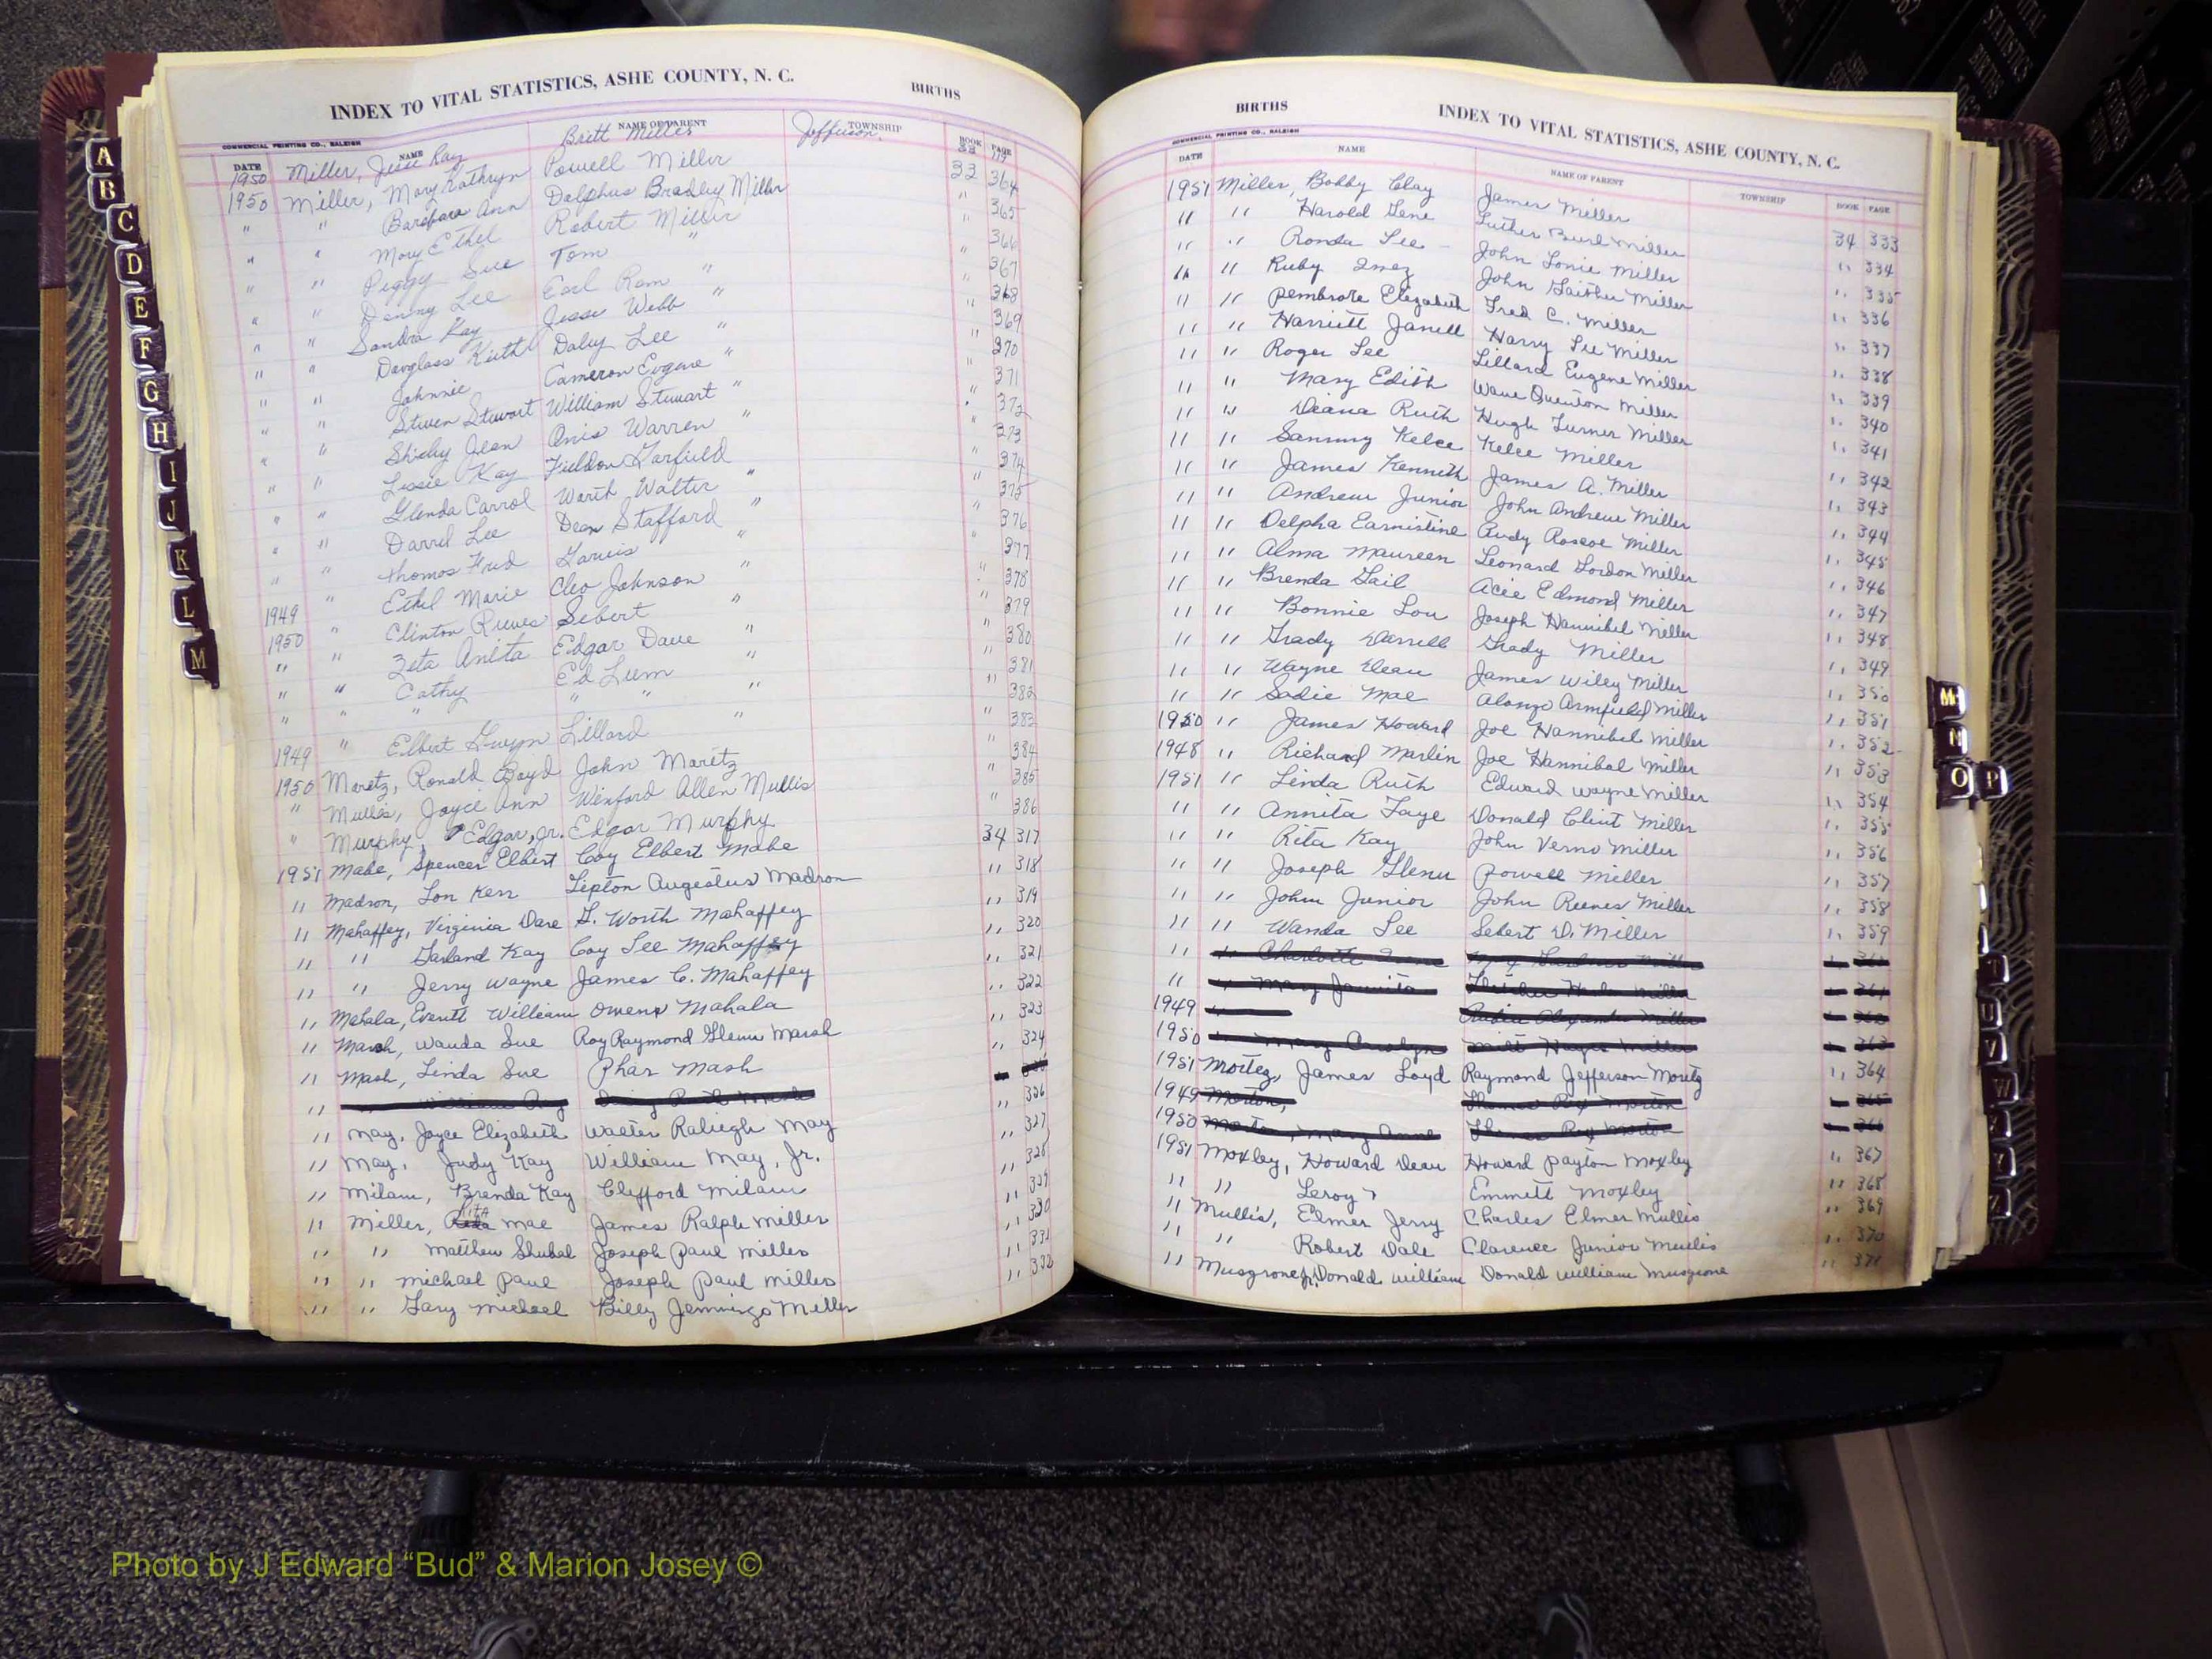 INDEX TO VITAL STATISTICS, ASHE COUNTY, N. C. BIRTHS
COMMERCIAL PRINTING CO., RALEIGH
DATE NAME NAME OF PARENT TOWNSHIP BOOK PAGE
1950 Miller, Jesse Ray Britt Miller Jefferson 32 119
1950 Miller, Mary Kathryn Powell Miller 32 364
" " Barbara Ann Dolphus Bradley Miller " 365
" " Mary Ethel Robert Miller " 366
" " Peggy Sue Tom " " 367
" " Danny Lee Earl Ram " " 368
" " Sandra Kay Jesse Webb " " 369
" " Douglass Keith Daley Lee " " 370
" " Johnnie Cameron Eugene " " 371
" " Steven Stewart William Stewart " " 372
" " Shirley Jean Anis Warren " " 373
" " Lessie Kay Fieldon Garfield " 374
" " Glenda Carrol Worth Walter " " 375
" " Darrel Lee Dean Stafford " " 376
" " Thomas Fred Garvis " " 377
" " Ethel Marie Cleo Johnson " " 378
1949 " Clinton Reeves Sebert " " 379
1950 " Zeta Anita Edgar Dave " " 380
" " Cathy Ed Lum " " 381
" " " " " " " 382
1949 " Elbert Gwyn Lillard " " 383
1950 Moretz, Ronald Boyd John Moretz " 384
" Mullis, Joyce Ann Winford Allen Mullis " 385
" Murphy, Edgar, Jr. Edgar Murphy " 386
1951 Mabe, Spencer Elbert Coy Elbert Mabe 34 317
" Madron, Lon Kerr Lipton Augestus Madron " 318
" Mahaffey, Virginia Dare G. Worth Mahaffey " 319
" " Garland Kay Coy Lee Mahaffey " 320
" " Jerry Wayne James C. Mahaffey " 321
" Mahala, Everitt William Owens Mahala " 322
" Marsh, Wanda Sue Roy Raymond Glenn Marsh " 323
" Mash, Linda Sue Phar Mash " 324
"
" May, Joyce Elizabeth Walter Raliegh May " 326
" May, Judy Kay William May, Jr. " 327
" Milam, Brenda Kay Clifford Milam " 328
" Miller, Rita Mae James Ralph Miller " 329
" " Matthew Shubal Joseph Paul Miller " 330
" " Michael Paul Joseph Paul Miller " 331
" " Gary Michael Billy Jennings Miller " 332
BIRTHS INDEX TO VITAL STATISTICS, ASHE COUNTY, N. C.
COMMERCIAL PRINTING CO., RALEIGH
DATE NAME NAME OF PARENT TOWNSHIP BOOK PAGE
1951 Miller, Bobby Clay James Miller 34 333
" " Harold Gene Luther Burl Miller " 334
" " Ronda Lee John Lonie Miller " 335
" " Ruby Inez John Gaither Miller " 336
" " Pembrote Elizabeth Fred C. Miller " 337
" " Harriett Janell Harry Lee Miller " 338
" " Roger Lee Lillard Eugene Miller " 339
" " Mary Edith Wave Quenton Miller " 340
" " Deana Ruth Hugh Turner Miller " 341
" " Sammy Kelce Kelce Miller " 342
" " James Kenneth James A. Miller " 343
" " Andrew Junior John Andrew Miller " 344
" " Delpha Earnistine Rudy Roscoe Miller " 345
" " Alma Maureen Leonard Gordon Miller " 346
" " Brenda Gail Acie Edmond Miller " 347
" " Bonnie Lou Joseph Hannibel Miller " 348
" " Grady Darrell Grady Miller " 349
" " Wayne Dean James Wiley Miller " 350
" " Sadie Mae Alonzo Armfield Miller " 351
1950 " James Howard Joe Hannibel Miller " 352
1948 " Richard Marlin Joe Hannibal Miller " 353
1951 " Linda Ruth Edward Wayne Miller " 354
" " Annita Faye Donald Clint Miller " 355
" " Rita Kay John Verno Miller " 356
" " Joseph Glenn Powell Miller " 357
" " John Junior John Reeves Miller " 358
" " Wanda Lee Sebert D. Miller " 359
"
"
1949
1950
1951 Moritz, James Loyd Raymond Jefferson Moritz " 364
1949 Morton,
1950
1951 Moxley, Howard Dean Howard Payton Moxley " 367
" " Leroy Emmett Moxley " 368
" Mullis, Elmer Jerry Charles Elmer Mullis " 369
" " Robert Dale Clarence Junior Mullis " 370
" Musgrone, Jr. Donald William Donald William Musgrone " 371
A
B
C
D
E
F
G
H
I
J
K
L
M
N
O
P
T
U
V
W
VITAL STATISTICS BIRTHS
Photo by J Edward “Bud” & Marion Josey ©